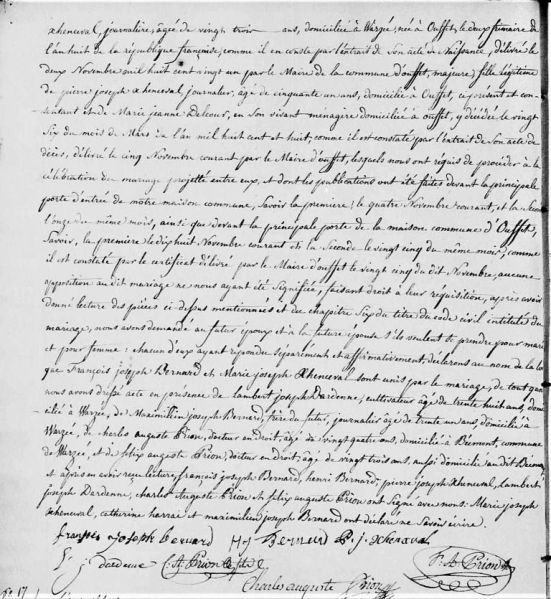 xhenceval, journalière, âgée de vingt trois ans, domiciliée à Warzée, née à Ouffet, le deux frimaire de
l'an huit de la république française, comme il en conste par l'extrait de Son acte de Naissance, délivré le
deux Novembre mil huit cent vingt un par le Maire de la commune d'ouffet, majeure, fille légitime
de pierre joseph xhenceval, journalier, âgé de cinquante un ans, domicilié à Ouffet, ci présent et con-
sentant et de Marie jeanne Delcour, en Son vivant menagere domiciliée à ouffet, y décédée le vingt
Six du mois de Mars de l'an mil huit cent et huit, comme il est constaté par l'extrait de Son acte de
décès, délivré le cinq Novembre courant par le Maire d'ouffet, lesquels nous ont réquis de procéder à la
célébration du mariage projetté entre eux, et dont les publications ont été faites devant la principale
porte d'entrée de nôtre maison commune, Savoir la premiere le quatre Novembre courant, et la Seconde
l'onze du même mois, ainsi que devant la principale porte de la maison commune d'Ouffet,
Savoir, la premiere le dixhuit Novembre courant et la Seconde le vingt cinq du même mois, comme
il est constaté par le certificat délivré par le Maire d'ouffet le vingt cinq du dit Novembre, aucune
opposition au dit mariage ne nous ayant été Signifiée, faisant droit à leur réquisition, après avoir
donné lecture des pièces ci dessus mentionnées et du chapitre Six du titre du code civil intitulé du
mariage, nous avons demandé au futur époux et à la future épouse S'ils veulent se prendre pour mari
et pour femme : chacun d'eux ayant répondu Séparément et affirmativement, déclarons au nom de la loi
que François joseph Bernard et Marie joseph Xhenceval sont unis par le mariage, de tout quoi
nous avons dressé acte en présence de lambert joseph Dardenne, cultivateur âgé de trente huit ans, domi-
cilié à Warzée, de Maximilien joseph Bernard, frère du futur, journalier âgé de trente un ans, domicilié à
Warzée, de charles auguste Prion, docteur en droit, âgé de vingt quatre ans, domicilié à Bémont, commune
de Warzée, et de felix auguste Prion, docteur en droit, âgé de vingt trois ans, aussi domicilié au dit Bémont,
et après en avoir reçu lecture, françois joseph Bernard, henri Bernard, pierre joseph xhenceval, lambert
joseph Dardenne, charles Auguste Prion et felix auguste Prion ont Signé avec nous. Marie joseph
xhenceval, catherine harrai et maximilien joseph Bernard ont déclaré ne Savoir écrire.
françois Joseph bernard H J Bernard P. j. xhenceval
L. j Dardenne F. A. Prion
Charles auguste Prion
N° 17